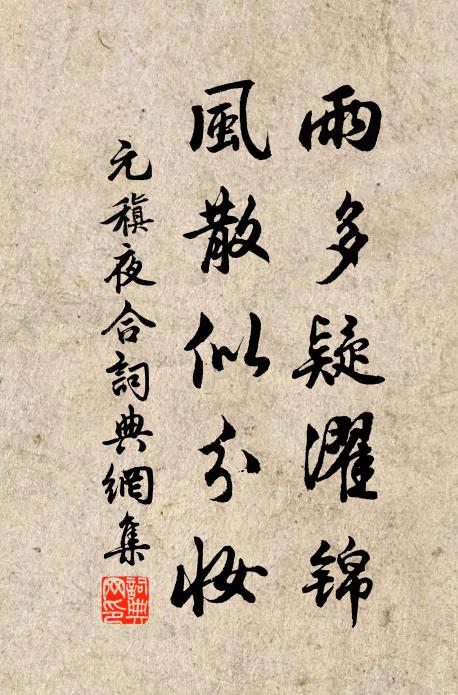 雨多疑濯锦
風散似分妆
元稹夜合詞典網集
詞典网印